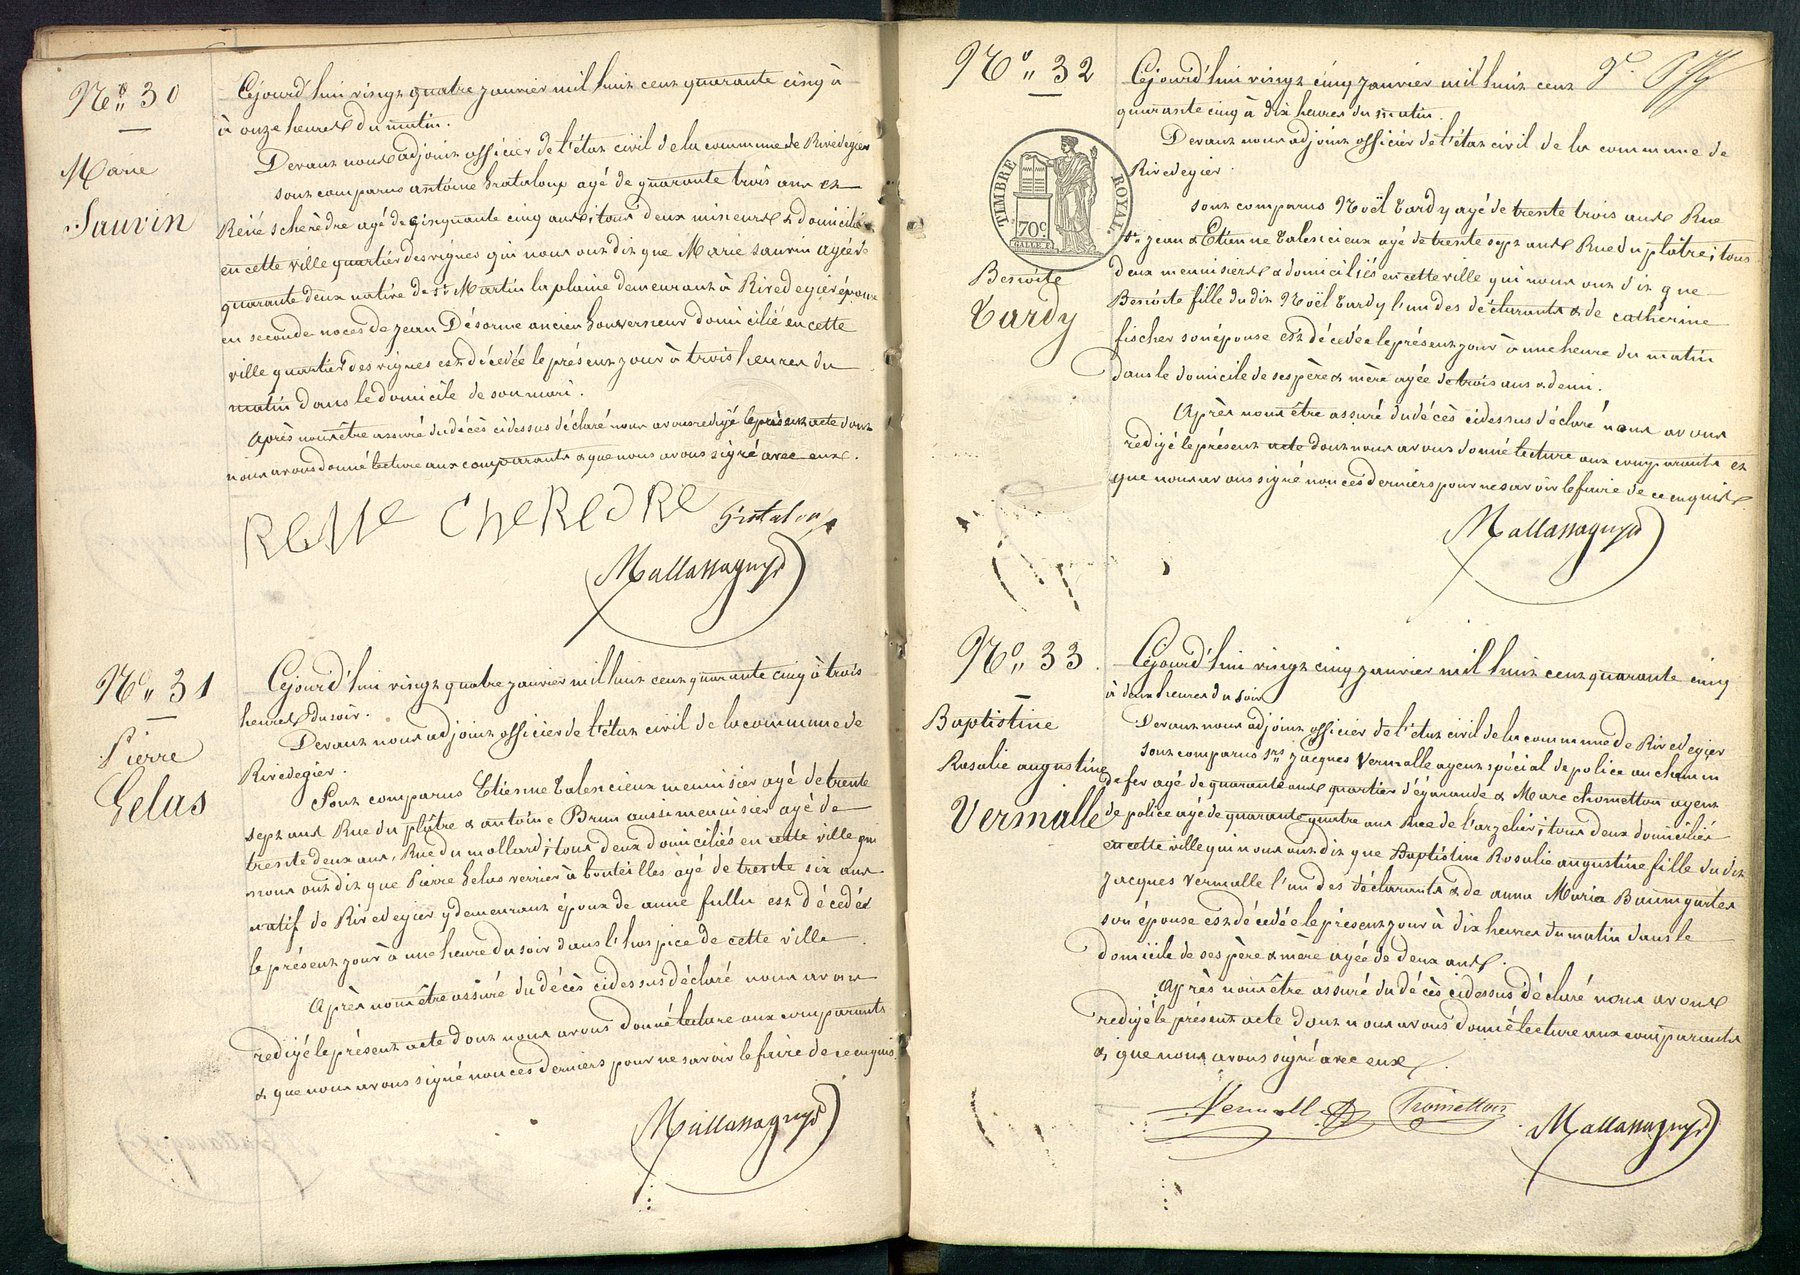 N.o 30
Marie
Sauvin
Cejourd'hui vingt quatre janvier mil huit cent quarante cinq à
à onze heures du matin.
Devant nous adjoint officier de l'état civil de la commune de Rivedegier
sont comparus antoine grataloup agé de quarante trois ans et
René scherèdre agé de cinquante cinq ans, tous deux mineurs & domiciliés
en cette ville quartier des vignes qui nous ont dit que Marie sauvin agée de
quarante deux native de St Martin la plaine demeurant à Rivedegier épouse
en seconde noces de jean Désorme ancien gouverneur domicilié en cette
ville quartier des vignes est décédée le présent jour à trois heures du
matin dans le domicile de son mari.
Après nous être assuré du décès cidessus déclaré nous avons redigé le présent acte dont
nous avons donné lecture aux comparants & que nous avons signé avec eux.
RENE CHEREDRE Grataloup
Mallassagnyd
N.o 31
Pierre
Gelas
Cejourd'hui vingt quatre janvier mil huit cent quarante cinq à trois
heures du soir.
Devant nous adjoint officier de l'état civil de la commune de
Rivedegier.
Sont comparus Etienne talencieux menuisier agé de trente
sept ans Rue du plâtre & antoine Brun aussi menuisier agé de
trente deux ans, Rue du mollard; tous deux domiciliés en cette ville qui
nous ont dit que Pierre Gelas verrier à bouteilles agé de trente six ans
natif de Rivedegier y demeurant époux de anne fullu est décédé
le présent jour à une heure du soir dans l'hospice de cette ville.
Après nous être assuré du décès cidessus déclaré nous avons
redigé le présent acte dont nous avons donné lecture aux comparants
& que nous avons signé non ces derniers pour ne savoir le faire de ce enquis.
Mallassagnyd
N.o 32
TIMBRE ROYAL
70c.
Benoite
Tardy
Cejourd'hui vingt cinq janvier mil huit cent
quarante cinq à dix heures du matin.
Devant nous adjoint officier de l'état civil de la commune de
Rivedegier.
sont comparus Noël tardy agé de trente trois ans Rue
St jean & Etienne talencieux agé de trente sept ans Rue du plâtre; tous
deux menuisiers & domiciliés en cette ville qui nous ont dit que
Benoite fille du dit Noël tardy l'un des déclarants & de cathérine
fischer son épouse est décédée le présent jour à une heure du matin
dans le domicile de ses père & mère agée de trois ans & demi.
Après nous être assuré du décès cidessus déclaré nous avons
redigé le présent acte dont nous avons donné lecture aux comparants et
que nous avons signé non ces derniers pour ne savoir le faire de ce enquis
Mallassagnyd
N.o 33.
Baptistine
Rosalie augustine
Vermalle
Cejourd'hui vingt cinq janvier mil huit cent quarante cinq
à deux heures du soir
Devant nous adjoint officier de l'état civil de la commune de Rivedegier
sont comparus Srs jacques Vermalle agent spécial de police au chemin
de fer agé de quarante ans quartier d'égarande & Marc chometton agent
de police agé de quarante quatre ans Rue de l'arzelier; tous deux domiciliés
en cette ville qui nous ont dit que Baptistine Rosalie augustine fille du dit
jacques Vermalle l'un des déclarants & de anna Maria Baumgarten
son épouse est décédée le présent jour à dix heures du matin dans le
domicile de ses père & mère agée de deux ans.
Après nous être assuré du décès cidessus déclaré nous avons
redigé le présent acte dont nous avons donné lecture aux comparants
& que nous avons signé avec eux.
Vermalle Chometton
Mallassagnyd